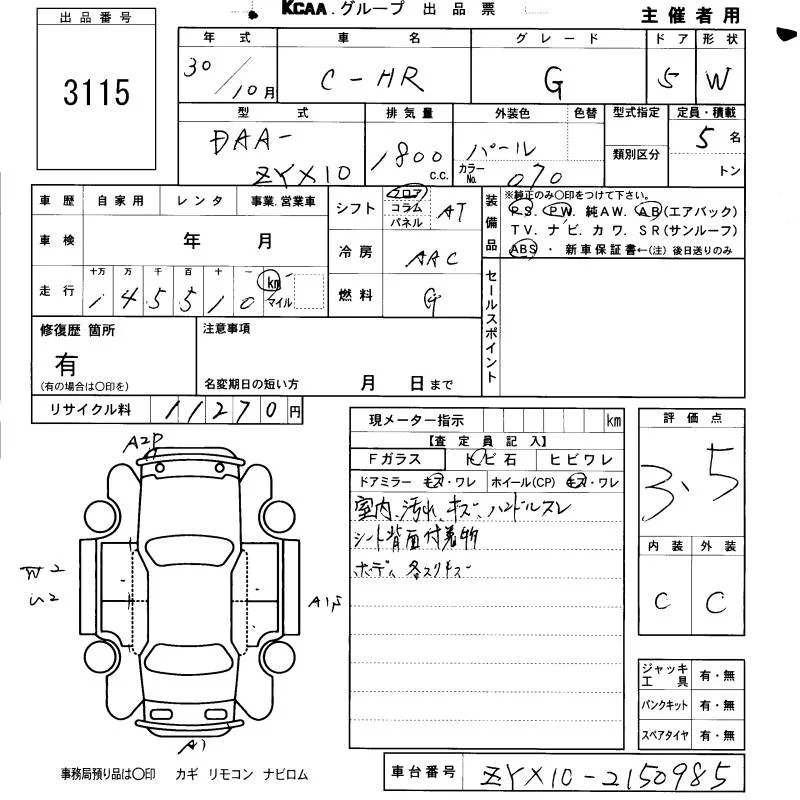 KCAA.グループ 出品票
主催者用
出品番号
3115
年式 車名 グレード ドア 形状
30/10月 C-HR G 5 W
型式 排気量 外装色 色替 型式指定 定員・積載
DAA-ZYX10 1800c.c. パール カラーNo. 070 類別区分 5名 トン
車歴 自家用 レンタ 事業.営業車
シフト フロア コラム パネル AT
装備品 ※純正のみ〇印をつけて下さい。
PS. PW. 純AW. AB(エアバック)
TV. ナビ. カワ. SR(サンルーフ)
ABS・新車保証書←(注)後日送りのみ
車検 年 月
冷房 AAC
走行 十万 万 千 百 十 一 km マイル
145510
燃料 G
セールスポイント
修復歴 箇所
有
(有の場合は〇印を)
注意事項
名変期日の短い方 月 日まで
リサイクル料 11270円
現メーター指示 km
【査定員記入】
Fガラス トビ石 ヒビワレ
ドアミラー キズ・ワレ ホイール(CP) キズ・ワレ
室内、汚れ、キズ、ハンドルスレ
シート背面付着物
ボディ 各スリキズ
評価点
3.5
内装 外装
C C
A2P
A1S
A1
ジャッキ工具 有・無
パンクキット 有・無
スペアタイヤ 有・無
事務局預り品は〇印 カギ リモコン ナビロム
車台番号 ZYX10-2150985